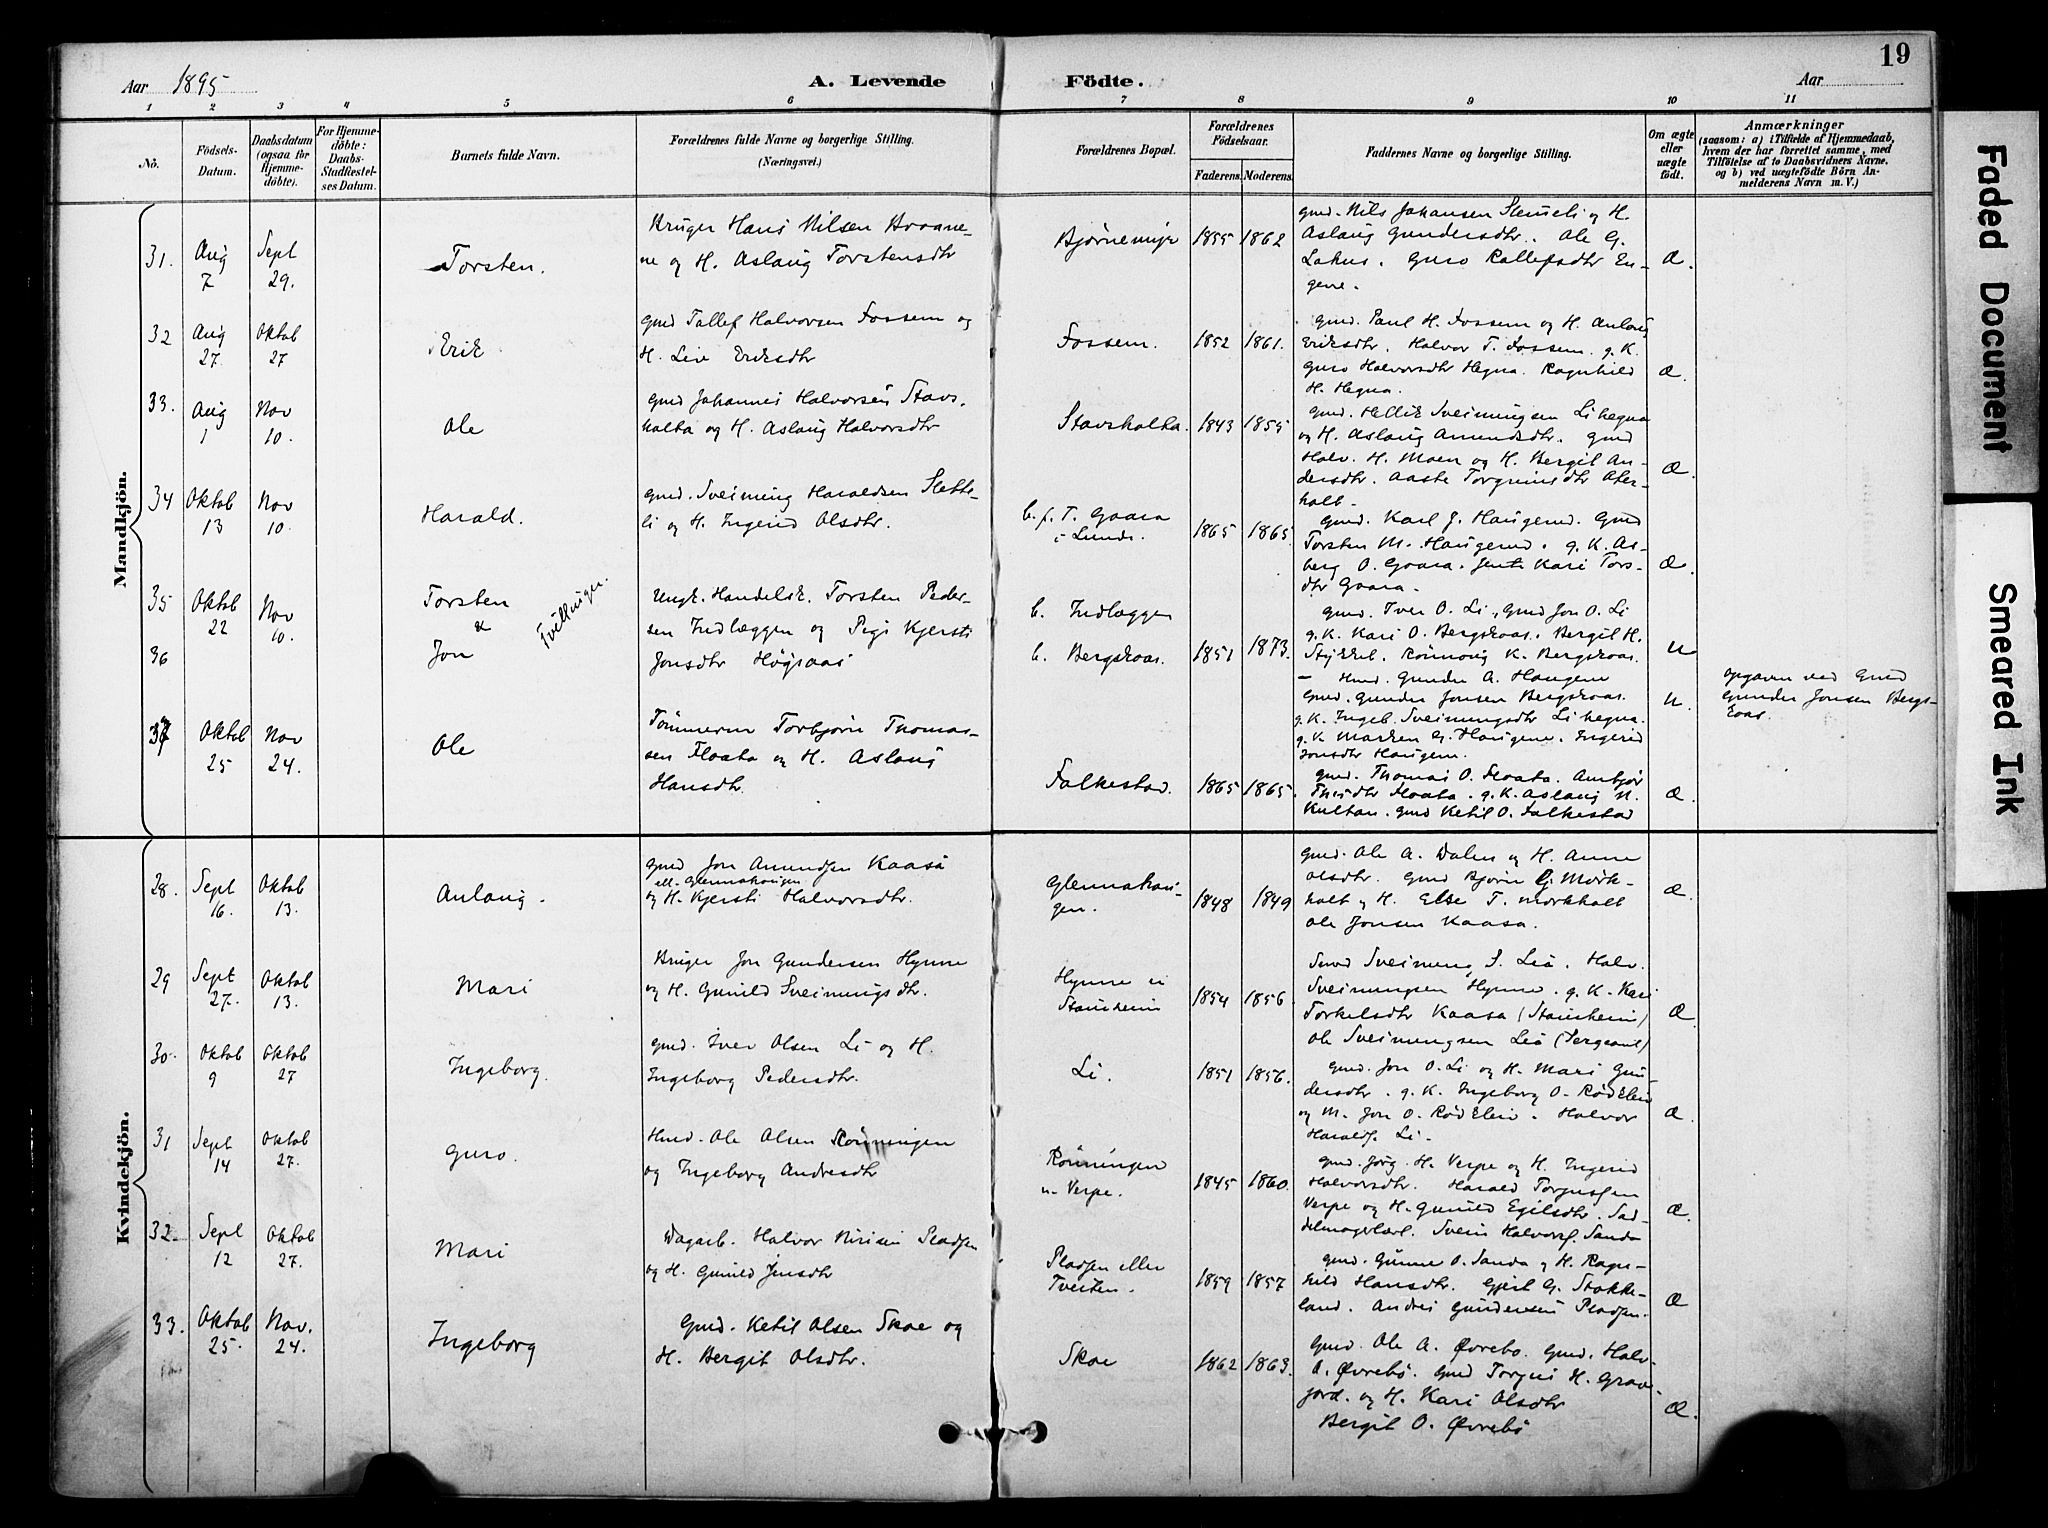 19
Aar 1895
A. Levende Födte.
Aar
1 2 3 4 5 6 7 8 9 10 11
No.
Födsels-Datum.
Daabsdatum (ogsaa for Hjemme-döbte).
For Hjemme-döbte: Daabs-Stadfæstel-ses Datum.
Barnets fulde Navn.
Forældrenes fulde Navne og borgerlige Stilling. (Næringsvei.)
Forældrenes Bopæl.
Forældrenes Födselsaar.
Faderens. Moderens.
Faddernes Navne og borgerlige Stilling.
Om ægte eller uægte födt.
Anmærkninger
(saasom: a) i Tilfælde af Hjemmedaab, hvem der har forrettet samme, med Tilföielse af to Daabsvidners Navne, og b) ved uægtefödte Börn Anmelderens Navn m. V.)
Mandkjön.
31. Aug 7 Sept 29. Torsten.
Bruger Hans Nilsen
ne og H. Aslaug Torstensdtr
Bjørnemyr 1855 1862
Gmd. Nils Johansen Slemeli og H.
Aslaug Gundersdtr. Ole G.
Lahus. Guro Rollefsdtr En-
gene.
Æ.
32 Aug 27. Oktob 27 Erik
Gmd Tallef Halvorsen Fossem og
H. Live Eriksdtr
Fossem. 1852 1861.
Gmd. Paul H. Fossem og H. Anlaug
Eriksdtr. Halvor T. Fossem. g. K.
Guro Halvorsdtr Hegna. Ragnhild
H. Hegna.
Æ.
33. Aug 1 Nov 10. Ole
Gmd Johannes Halvorsen Stavs-
holta og H. Aslaug Halvorsdtr
Stavsholta. 1843 1855
Gmd. Hellik Sveinungsen Lihegna
og H. Aslaug Amundsdtr. Gmd
Halv. H. Moen og H. Bergit An-
dersdtr. Aaste Torgrimsdtr Ater-
holt.
Æ.
34 Oktob 13 Nov 10. Harald.
Gmd. Sveinung Haraldsen Slette-
li og H. Ingerid Olsdtr.
b. f. T. Gaara
i Lunde. 1865 1865
Gmd. Karl J. Haugerud. Gmd
Torsten M. Haugerud. g. K. As-
berg O. Gaara. Jente Kari Tors-
dtr Gaara.
Æ.
35 Oktob 22 Nov 10. Torsten
&
36 Jon
Tvillinger.
Ungk. Handelsk. Torsten Peder-
sen Indlæggen og Pige Kjersti
Jonsdtr Högaas
b. Indlæggen
b. Bergskaas. 1851 1873.
Gmd. Iver O. Li. Gmd Jon O. Li
g. K. Kari O. Bergskaas. Bergit H.
Stykkel. Rönnoug K. Bergskaas.
U
– Hmd. Gunder A. Haugene
Gmd. Gunder Jonsen Bergskaas.
g. K. Ingeb. Sveinungsdtr Lihegna.
g. K. Marken G. Haugene. Ingerid
Jonsdtr Haugene.
U.
opgaven ved Gmd
Gunder Jonsen Bergs-
kaas.
37 Oktob 25 Nov 24. Ole
Tömmerm Torbjörn Thomas-
sen Floata og H. Aslaug
Hansdtr.
Falkestad. 1865 1865.
Gmd. Thomas O. Floata. Ambjör
Thosdtr Floata. g. K. Aslaug N.
Kultan. Gmd Ketil O. Falkestad
Æ.
Kvindekjön.
28. Sept 16. Oktob 13. Anlaug.
Gmd Jon Amundsen Kaasa
ell. Glennahaugen
og H. Kjersti Halvorsdtr.
Glennahau-
gen. 1848 1849
Gmd. Ole A. Dalen og H. Anne
Olsdtr. Gmd Bjørn G. Mörk-
holt og H. Else T. Mörkholt
Ole Jonsen Kaasa.
Æ.
29 Sept 27. Oktob 13. Mari
Bruger Jon Gundersen Hynne
og H. Gunild Sveinungsdtr.
Hynne u
Stausheim 1854 1856
Gmd Sveinung S. Leá. Halv.
Sveinungsen Hynne. g. K. Kari
Torkelsdtr Kaasa (Stausheim)
Ole Sveinungsen Leá (Sergeant)
Æ.
30. Oktob 9 Oktob 27 Ingeborg.
Gmd. Iver Olsen Li og H.
Ingeborg Pedersdtr.
Li. 1851 1856.
Gmd. Jon O. Li og H. Mari Gun-
dersdtr. g. K. Ingeborg O. Rödklev
og M. Jon O. Rödklev. Halvor
Haraldss. Li.
Æ.
31 Sept 14 Oktob 27. Guro.
Hmd. Ole Olsen Rönningen
og Ingeborg Andersdtr
Rönningen
u. Verpe. 1845 1860.
Gmd. Jörg. H. Verpe og H. Ingerid
Halvorsdtr. Harald Torjussen
Verpe og H. Gunild Egilsdtr. Sad-
delmagerlærl. Svein Halvorss. Sanda
Æ.
32 Sept 12 Oktob 27. Mari
Dagarb. Halvor Pladsen
og H. Gunild Jensdtr
Pladsen eller
Tveiten. 1859 1857
Gmd. Gunne O. Sanda og H. Ragn-
hild Hansdtr. Gjert G. Stokke-
land. Andres Gundersen Pladsen.
Æ
33. Oktob 25. Nov. 24. Ingeborg
Gmd. Ketil Olsen Skoe og
H. Bergit Olsdtr.
Skoe 1862 1863.
Gmd. Ole A. Øvrebø. Gmd. Halv.
A. Øvrebø. Gmd Torjus H. Grave-
jord. og H. Kari Olsdtr
Bergit O. Øvrebø
Æ.
Faded Document
Smeared Ink